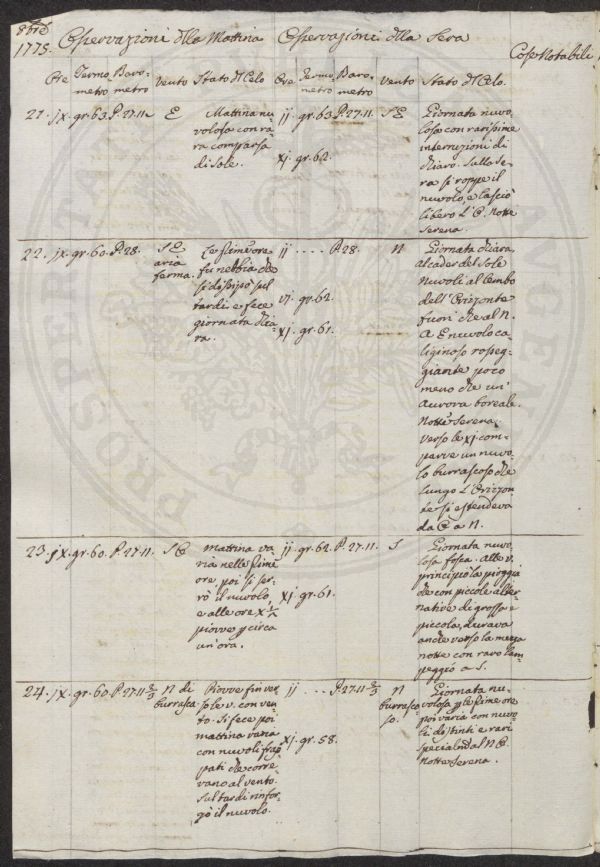 8bre
1775. Osservazioni dlla Mattina Osservazioni dlla Sera
Cose Notabili.
Ore Termo- Baro- vento Stato dl Celo. Ore Termo- Baro- vento Stato dl Celo.
metro metro metro metro
21. jx. gr. 63. P. 27. 11. E
Mattina nu-
volosa con ra-
ra comparsa
di Sole.
ij. gr. 63. P. 27. 11. SE
xj. gr. 62.
Giornata nuvo-
losa con rarissime
interruzioni di
chiaro. Sulla Se-
ra si roppe il
nuvolo, e lasciò
libero l'O. Notte
Serena.
22. jx. gr. 60. P. 28. SE
aria
ferma.
Le prime ore
fu nebbia che
si dissipò sul
tardi e fece
giornata chia-
ra.
ij .... P. 28. N
vj. gr. 62.
xj. gr. 61.
Giornata chiara,
al cader del Sole
Nuvoli al lembo
dell'Orizonte
fuori che al N.
A E nuvolo ca-
liginoso rosseg-
giante poco
meno che un'
Aurora boreale.
Notte Serena.
Verso le xj. com-
parve un nuvo-
lo burrascoso che
lungo l'Orizon-
te si estendeva
da O a N.
23. jx. gr. 60. P. 27. 11. SO
Mattina va-
ria nelle prime
ore, poi si ser-
rò il nuvolo,
e alle ore x 1/2
piovve p circa
un'ora.
ij. gr. 62. P. 27. 11. S
xj. gr. 61.
Giornata nuvo-
losa fosca. Alle v.
principiò la pioggia
che con piccole alter-
native di grossa e
piccola, durava
anche verso la mezza
notte con raro lam-
peggiò a S.
24. jx. gr. 60. P. 27. 11 2/3 N di
burrasca
Piovve fin ver-
so le v. con ven-
to. Si fece poi
mattina varia
con nuvoli strap-
pati che corre-
vano al vento.
Sul tardi rinfor-
zò il nuvolo.
ij .... P. 27. 11 2/3 N
burrasco-
so.
xj. gr. 58.
Giornata nu-
volosa p le prime ore
poi varia con nuvo-
li distinti e rari
Notte Serena.